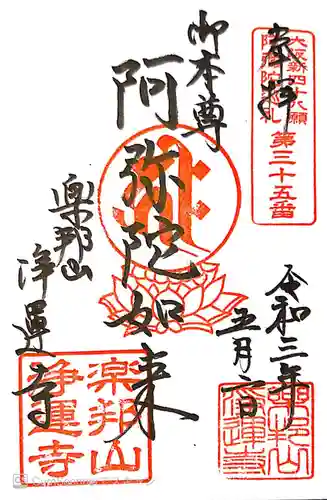 奉拝
大阪新四十八願
阿弥陀巡礼
第三十五番
御本尊
阿弥陀如来
楽邦山
浄運寺
令和三年
五月二日
楽邦山
浄運寺
楽邦山
浄運寺